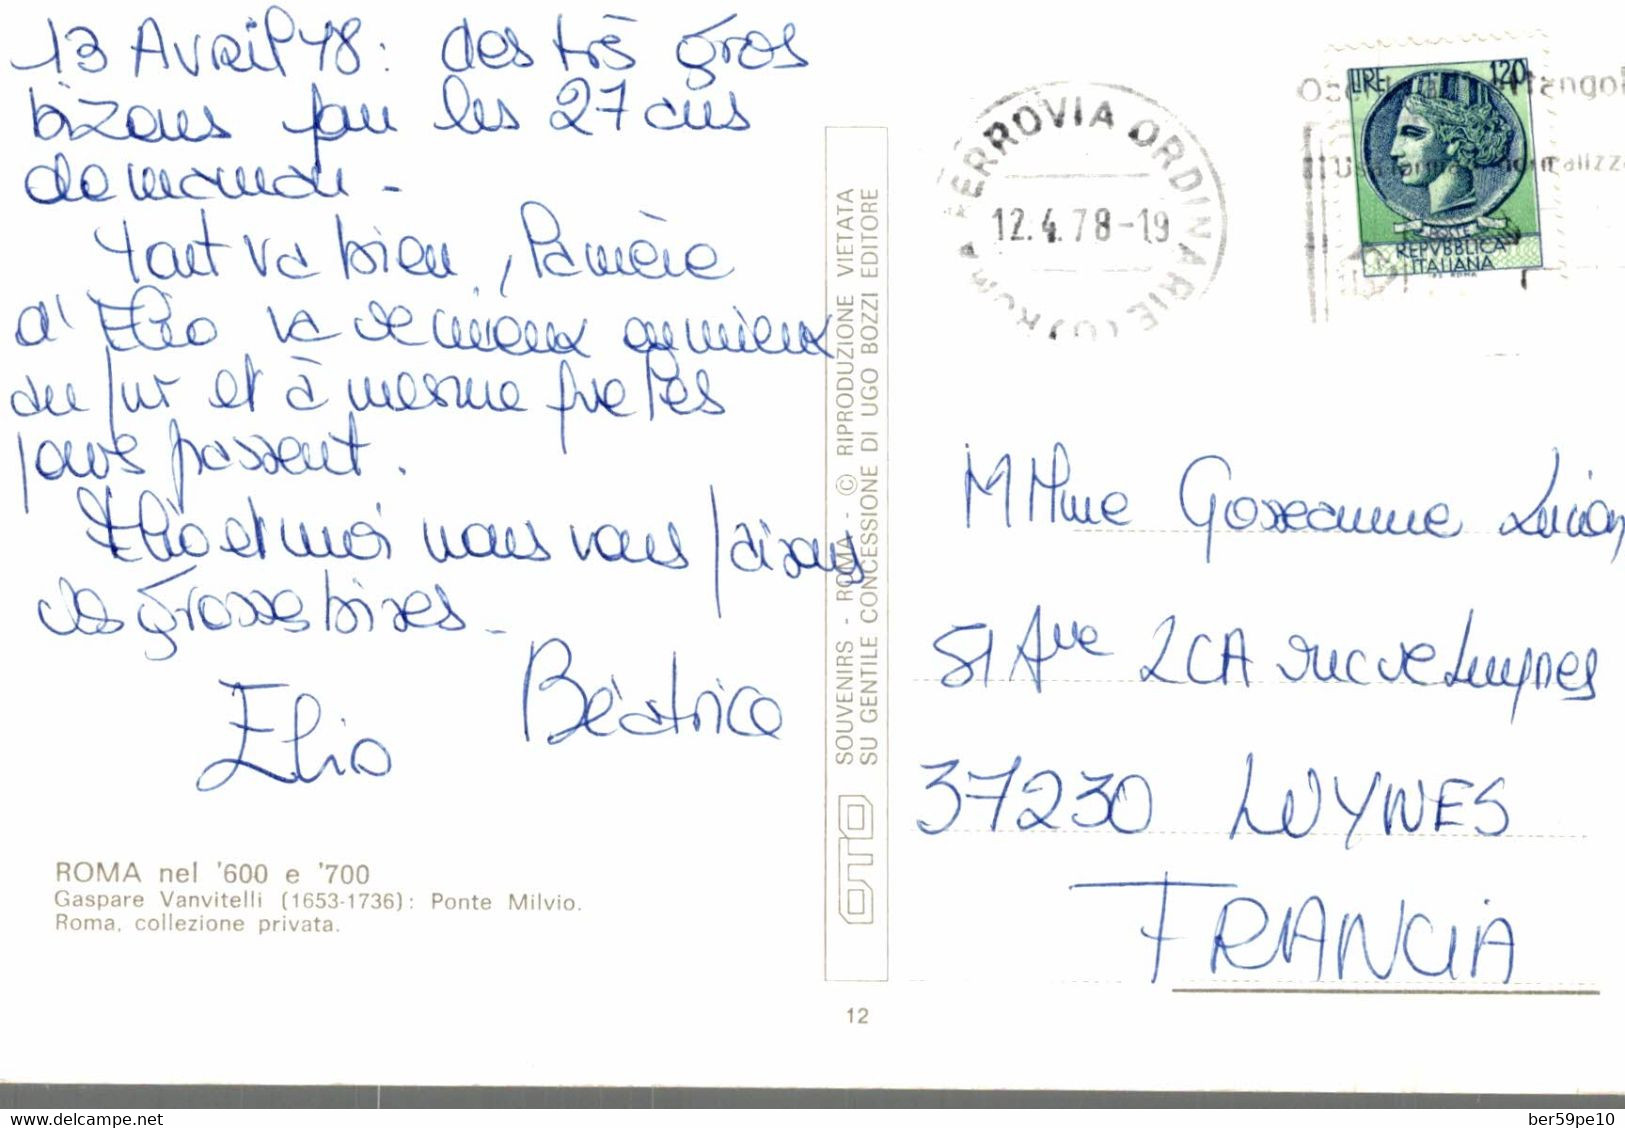 13 Avril 78 : des très gros
bizous pou les 27 ans
de maman -
Tout va bien, la mère
d'Elio va de mieux en mieux
au fur et à mesure que les
jours passent.
Elio et moi nous vous faisons
de grosse bises -
Béatrice
Elio
ROMA nel '600 e '700
Gaspare Vanvitelli (1653-1736): Ponte Milvio.
Roma, collezione privata.
SOUVENIRS - ROMA - © RIPRODUZIONE VIETATA
SU GENTILE CONCESSIONE DI UGO BOZZI EDITORE
OTO
12
ROMA FERROVIA ORDINARIE (U)
12.4.78-19
LIRE 120
POSTE
REPVBBLICA
ITALIANA
M Mme
51 Ave
37230 LUYNES
FRANCIA
www.delcampe.net
ber59pe10